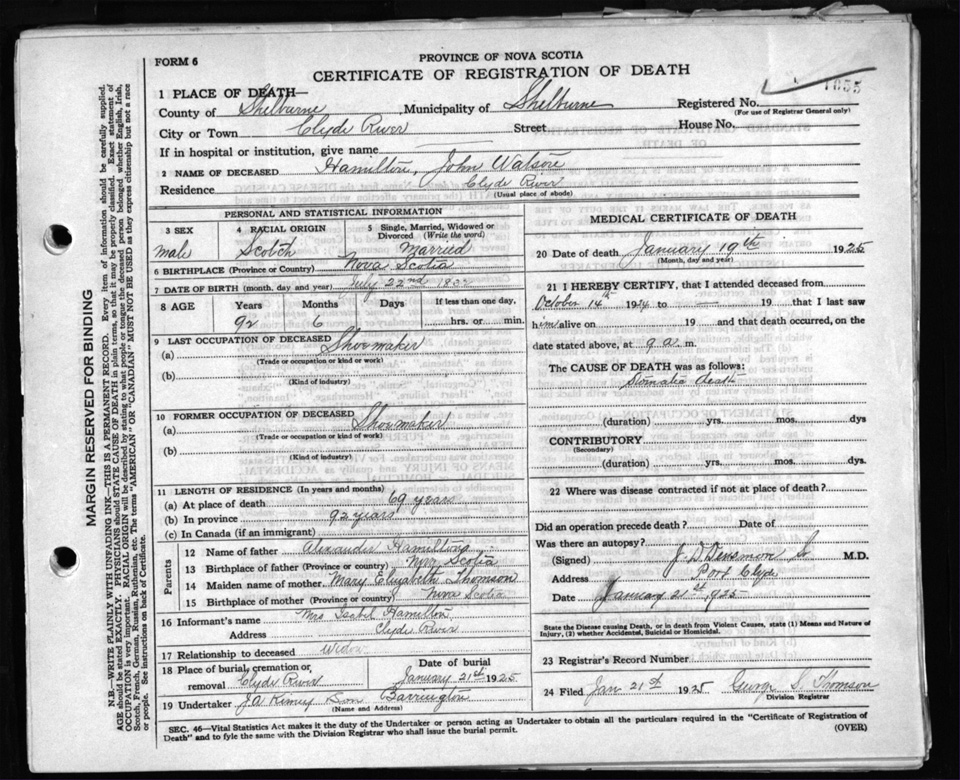 FORM 6
PROVINCE OF NOVA SCOTIA
CERTIFICATE OF REGISTRATION OF DEATH
1 PLACE OF DEATH—
1655
County of Shelburne Municipality of Shelburne Registered No.
(For use of Registrar General only)
City or Town Clyde River Street House No.
If in hospital or institution, give name
2 NAME OF DECEASED Hamilton, John Watson
Residence Clyde River
(Usual place of abode)
PERSONAL AND STATISTICAL INFORMATION
3 SEX 4 RACIAL ORIGIN 5 Single, Married, Widowed or Divorced (Write the word)
male Scotch Married
6 BIRTHPLACE (Province or Country) Nova Scotia
7 DATE OF BIRTH (month, day and year) July 22nd 1832
8 AGE Years Months Days If less than one day,
92 6 hrs. or min.
9 LAST OCCUPATION OF DECEASED
(a) Shoemaker
(Trade or occupation or kind or work)
(b)
(Kind of industry)
10 FORMER OCCUPATION OF DECEASED
(a) Shoemaker
(Trade or occupation or kind of work)
(b)
(Kind of industry)
11 LENGTH OF RESIDENCE (In years and months)
(a) At place of death 69 years
(b) In province 92 years
(c) In Canada (if an immigrant)
Parents
12 Name of father Alexander Hamilton
13 Birthplace of father (Province or country) Nova Scotia
14 Maiden name of mother Mary Elizabeth Thomson
15 Birthplace of mother (Province or country) Nova Scotia
16 Informant's name Mrs Isabel Hamilton
Address Clyde River
17 Relationship to deceased Widow
18 Place of burial, cremation or removal Clyde River
Date of burial January 21st 1925
19 Undertaker J.A. Son Barrington
(Name and Address)
MEDICAL CERTIFICATE OF DEATH
20 Date of death January 19th 1925
(Month, day and year)
21 I HEREBY CERTIFY, that I attended deceased from
October 14th 1924 to — 19 , that I last saw
him alive on 19 and that death occurred, on
date stated above, at 9 a. m.
The CAUSE OF DEATH was as follows:
death
(duration) yrs. mos. dys
CONTRIBUTORY
(Secondary)
(duration) yrs. mos. dys.
22 Where was disease contracted if not at place of death?
Did an operation precede death? Date of
Was there an autopsy?
(Signed) J. D. Densmon M.D.
Address Port Clyde
Date January 21st 1925
State the Disease causing Death, or in death from Violent Causes, state (1) Means and Nature of
Injury, (2) whether Accidental, Suicidal or Homicidal.
23 Registrar's Record Number
24 Filed Jan 21st 1925 George S. Thomson
Division Registrar
SEC. 46—Vital Statistics Act makes it the duty of the Undertaker or person acting as Undertaker to obtain all the particulars required in the "Certificate of Registration of
Death" and to fyle the same with the Division Registrar who shall issue the burial permit.
(OVER)
MARGIN RESERVED FOR BINDING
N.B.—WRITE PLAINLY WITH UNFADING INK—THIS IS A PERMANENT RECORD. Every item of information should be carefully supplied.
AGE should be stated EXACTLY. PHYSICIANS should STATE CAUSE OF DEATH in plain terms, so that it may be properly classified. Exact statement of
OCCUPATION is very important. RACIAL ORIGIN will be described by stating to what people or tongue the deceased person belonged whether English, Irish,
Scotch, French, German, Russian, Ruthenian, etc. The terms "AMERICAN" or "CANADIAN" MUST NOT BE USED as they express citizenship but not a race
or people. See instructions on back of Certificate.